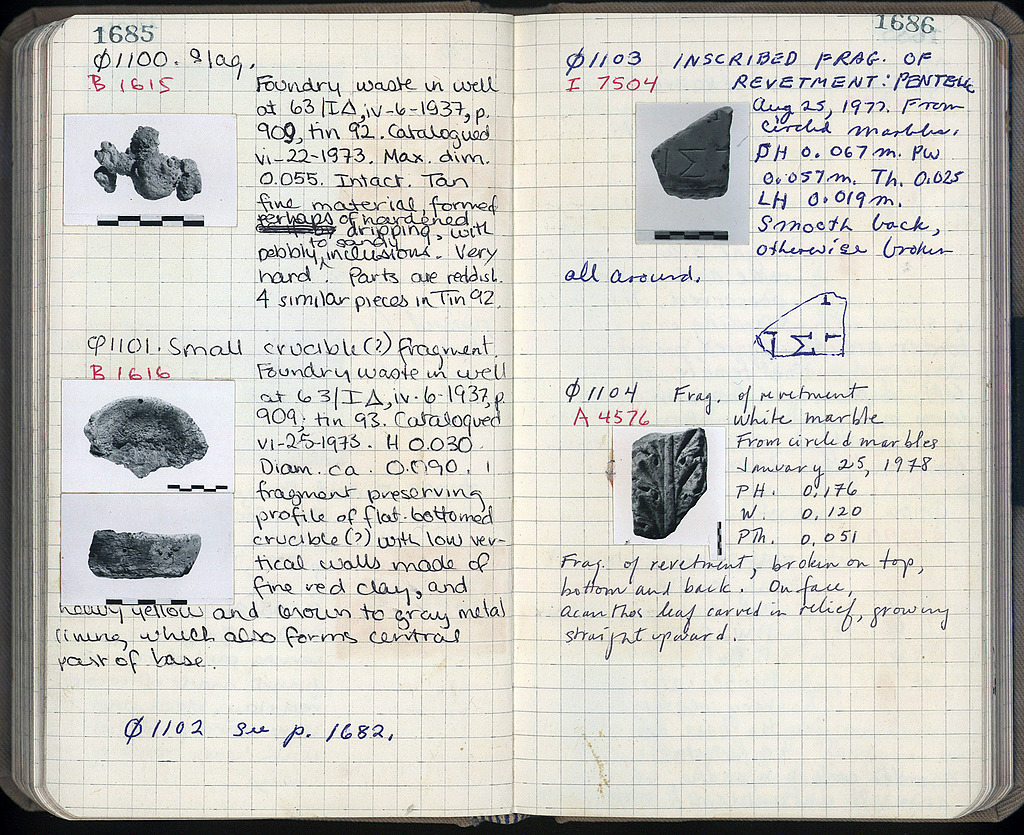 1685
Φ1100. Slag.
B 1615
Foundry waste in well
at 63/ΙΔ, iv-6-1937, p.
909, tin 92. Catalogued
vi-22-1973. Max. dim.
0.055. Intact. Tan
fine material, formed
perhaps of hardened
dripping, with
pebbly to sandy inclusions. Very
hard. Parts are reddish.
4 similar pieces in Tin 92.
Φ1101. Small crucible(?) fragment.
B 1616
Foundry waste in well
at 63/ΙΔ, iv-6-1937, p
909; tin 93. Catalogued
vi-25-1973. H 0.030.
Diam. ca. 0.090. 1
fragment preserving
profile of flat-bottomed
crucible(?) with low ver-
tical walls made of
fine red clay, and
heavy yellow and brown to gray metal
lining, which also forms central
part of base.
Φ1102 See p. 1682.
1686
Φ1103 INSCRIBED FRAG. OF
I 7504 REVETMENT: PENTELIC
Aug 25, 1977. From
circled marbles.
PH 0.067 m. PW
0.057 m. Th. 0.025
LH 0.019 m.
Smooth back,
otherwise broken
all around.
Φ1104 Frag. of revetment
A 4576 white marble
From circled marbles
January 25, 1978
PH. 0,176
W. 0,120
PTh. 0,051
Frag. of revetment, broken on top,
bottom and back. On face,
acanthos leaf carved in relief, growing
straight upward.